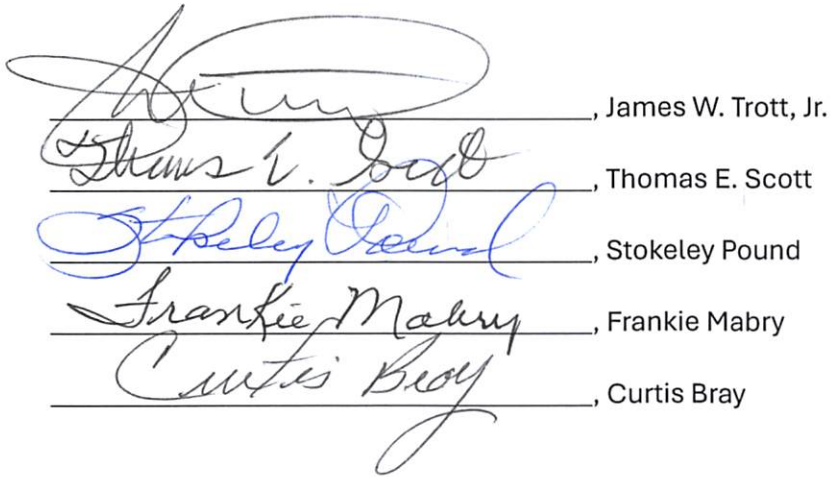 , James W. Trott, Jr.
Thomas E. Scott, Thomas E. Scott
Stokeley Pound, Stokeley Pound
Frankie Mabry, Frankie Mabry
Curtis Bray, Curtis Bray